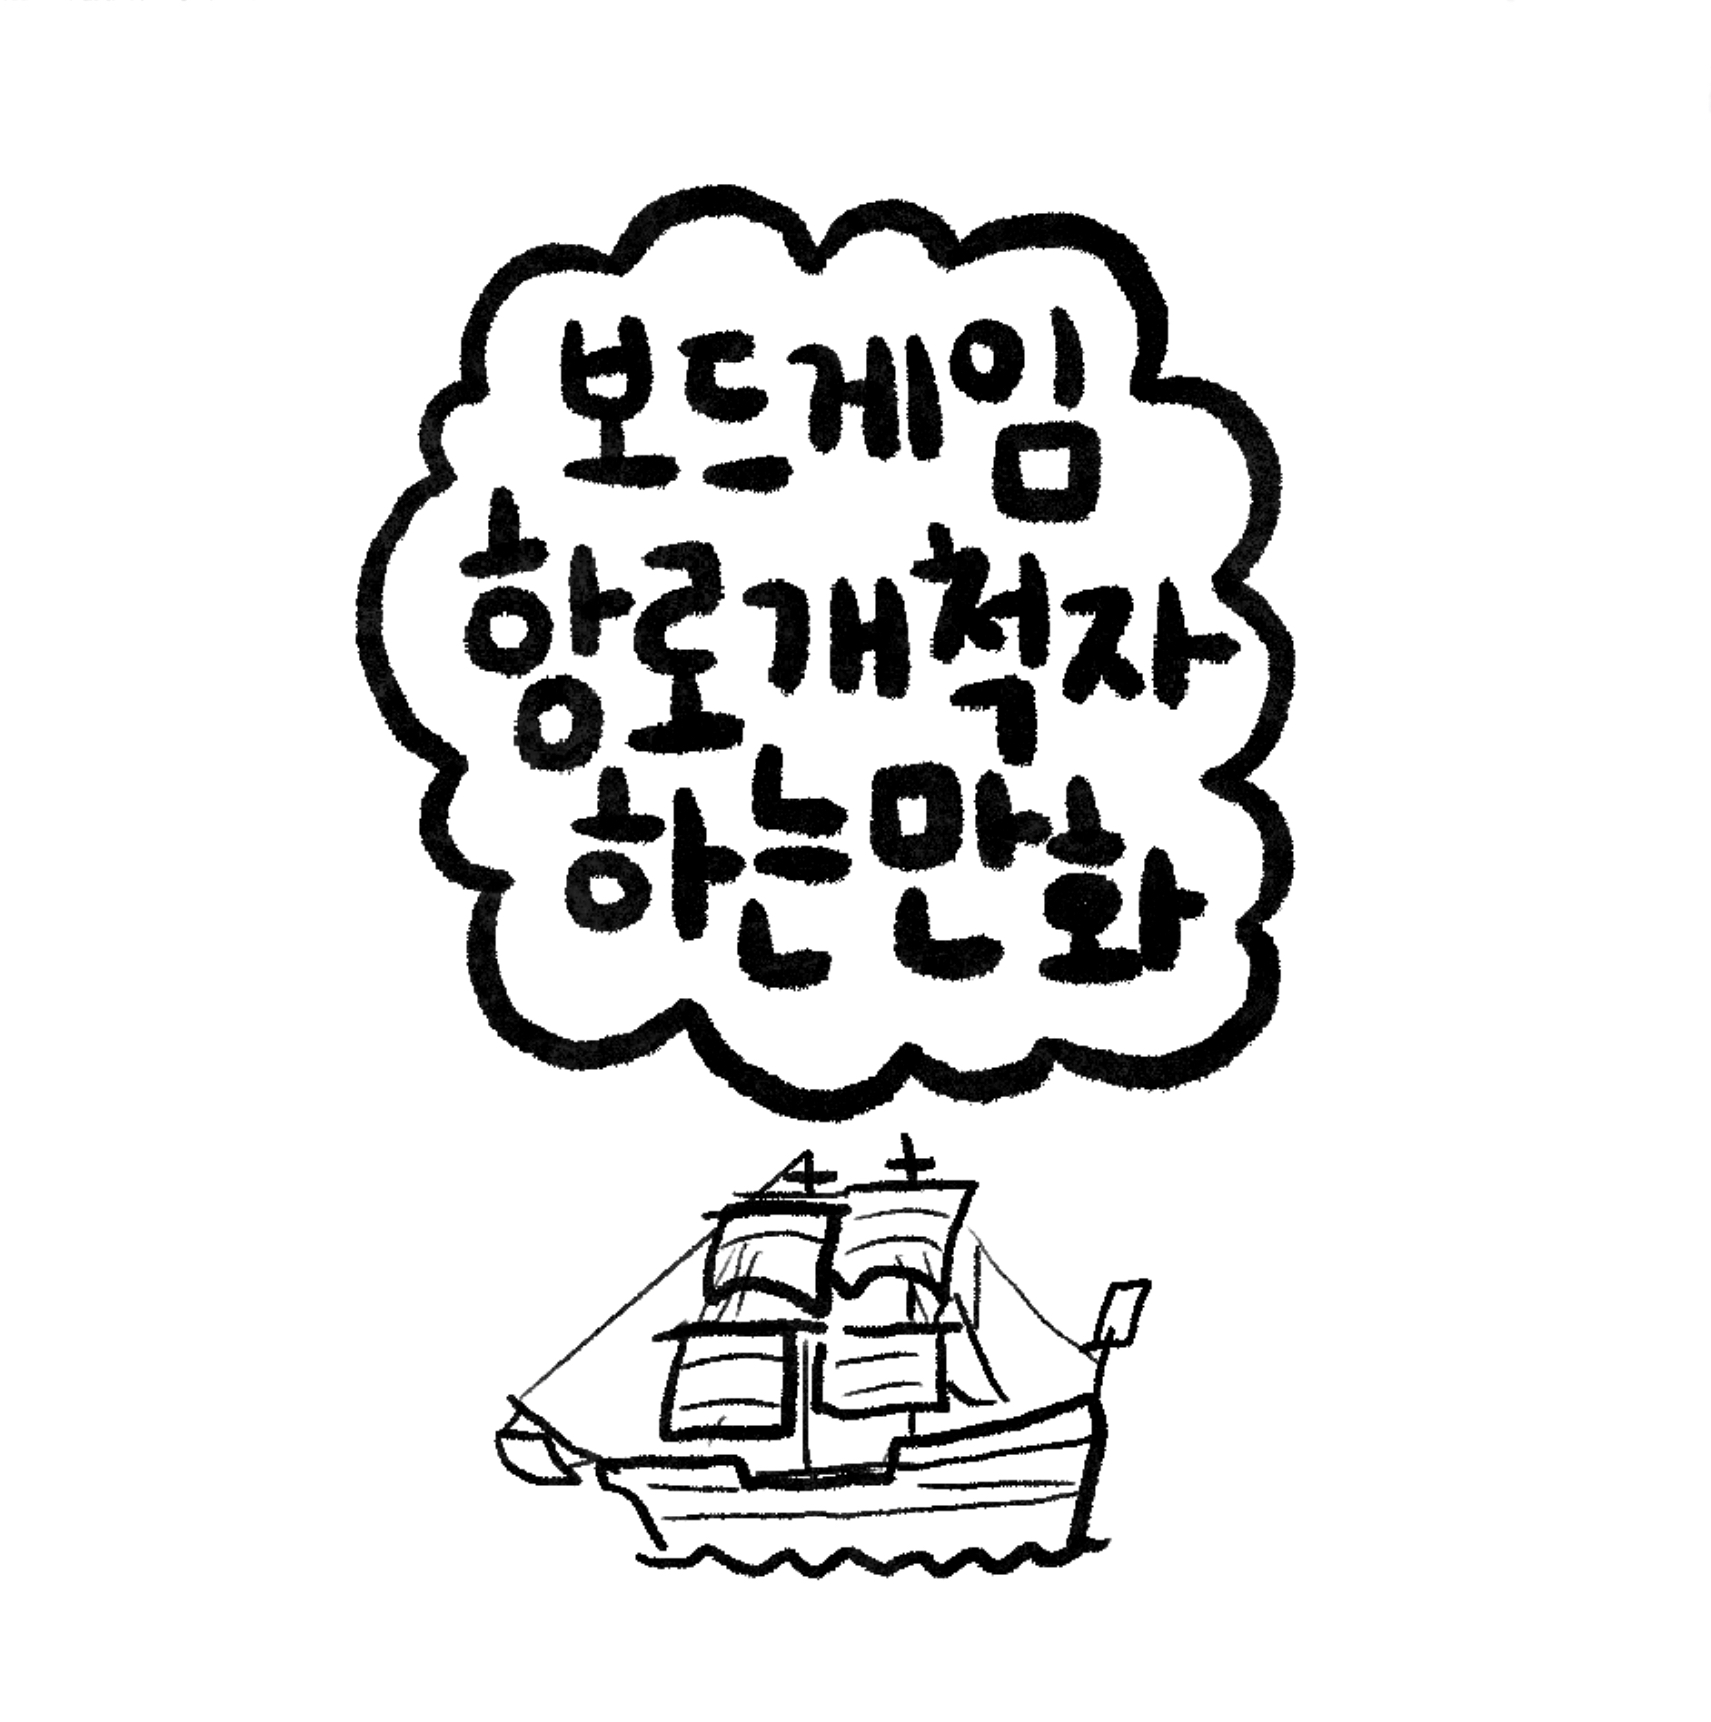 보드게임
항로개척자
하는만화